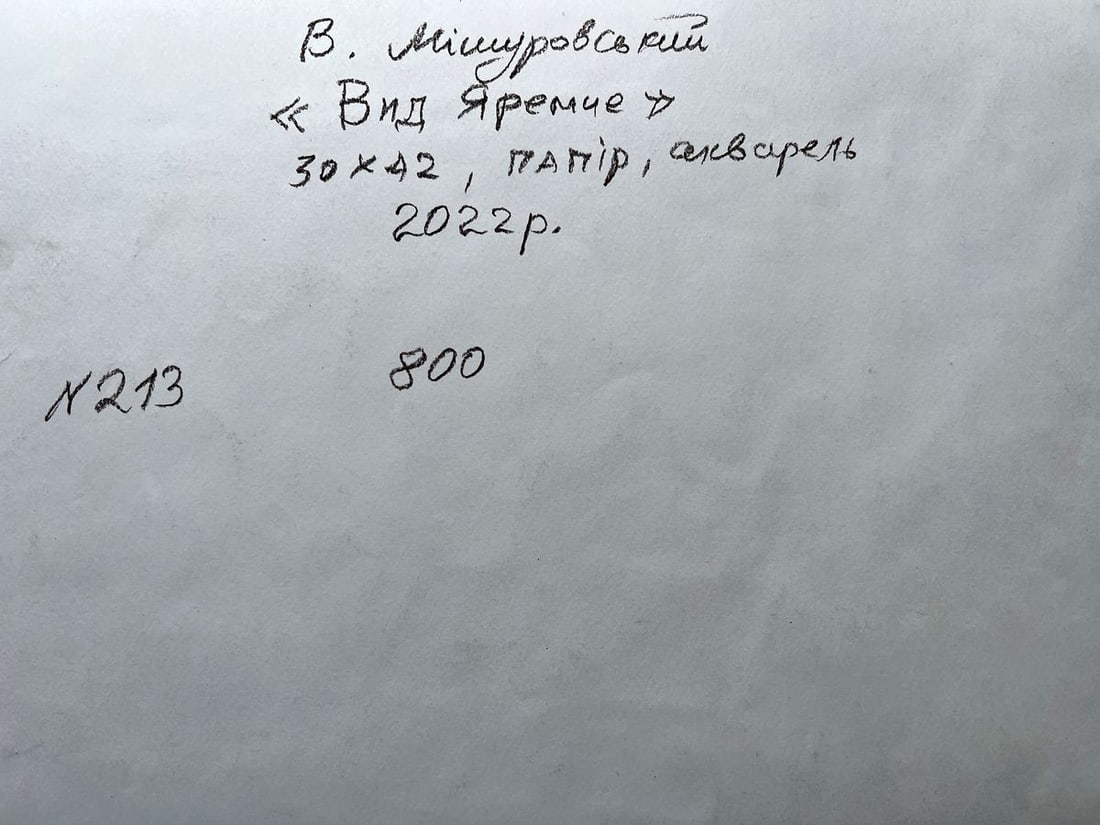 В. Мішуровський
« Вид Яремче »
30×42, папір, акварель
2022р.
N213 800